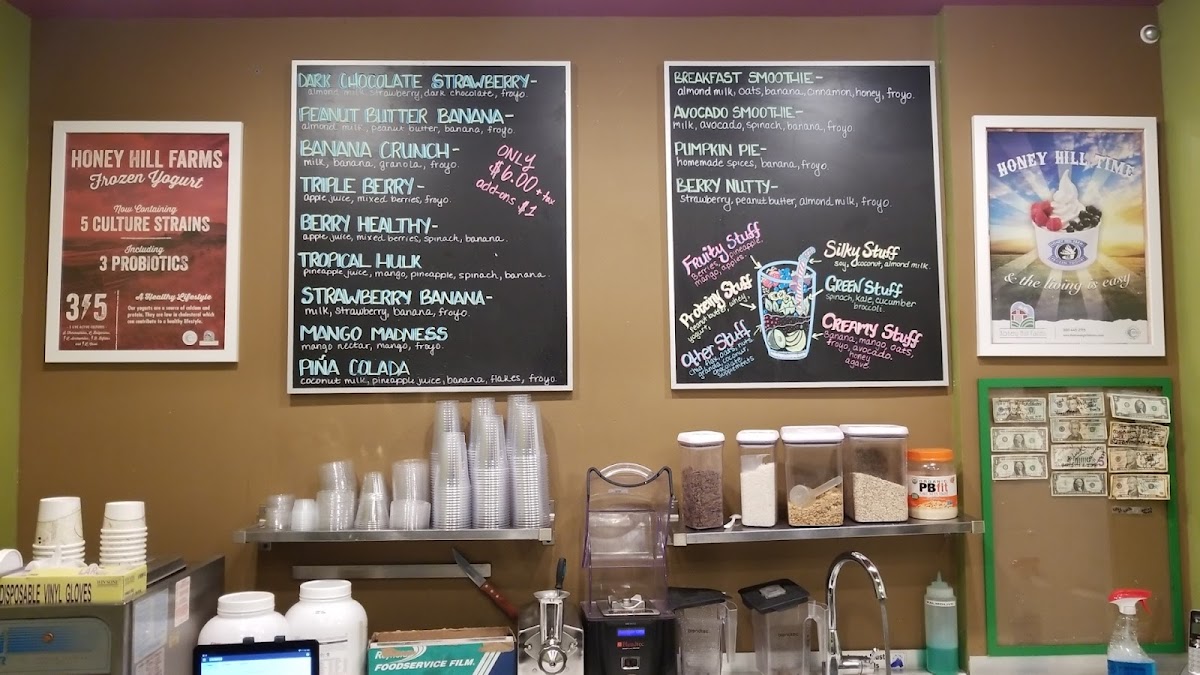 HONEY HILL FARMS
Frozen Yogurt
Now Containing
5 CULTURE STRAINS
Including
3 PROBIOTICS
3 5
A Healthy Lifestyle
Our yogurts are a source of calcium and
protein. They are low in cholesterol which
can contribute to a healthy lifestyle.
DARK CHOCOLATE STRAWBERRY-
almond milk, strawberry, dark chocolate, froyo.
PEANUT BUTTER BANANA-
almond milk, peanut butter, banana, froyo.
BANANA CRUNCH-
milk, banana, granola, froyo.
TRIPLE BERRY-
apple juice, mixed berries, froyo.
BERRY HEALTHY-
apple juice, mixed berries, spinach, banana.
TROPICAL HULK
pineapple juice, mango, pineapple, spinach, banana.
STRAWBERRY BANANA-
milk, strawberry, banana, froyo.
MANGO MADNESS
mango nectar, mango, froyo.
PIÑA COLADA
coconut milk, pineapple juice, banana, flakes, froyo.
ONLY
$6.00 + tax
add-ons $1
BREAKFAST SMOOTHIE-
almond milk, oats, banana, cinnamon, honey, froyo.
AVOCADO SMOOTHIE-
milk, avocado, spinach, banana, froyo.
PUMPKIN PIE-
homemade spices, banana, froyo.
BERRY NUTTY-
strawberry, peanut butter, almond milk, froyo.
Fruity Stuff
Berries, pineapple,
mango, apples.
Proteiny Stuff
peanut butter, whey,
yogurt,
Other Stuff
chia, flax, oats, nuts
granola, coconut,
chocolate,
supplements
Silky Stuff
soy, coconut, almond milk.
GREEN Stuff
spinach, kale, cucumber
broccoli.
CREAMY Stuff
Banana, mango, oats,
froyo, avocado.
honey
agave.
HONEY HILL TIME
& the living is easy
DISPOSABLE VINYL GLOVES
FOODSERVICE FILM.
ORGANIC
PBfit